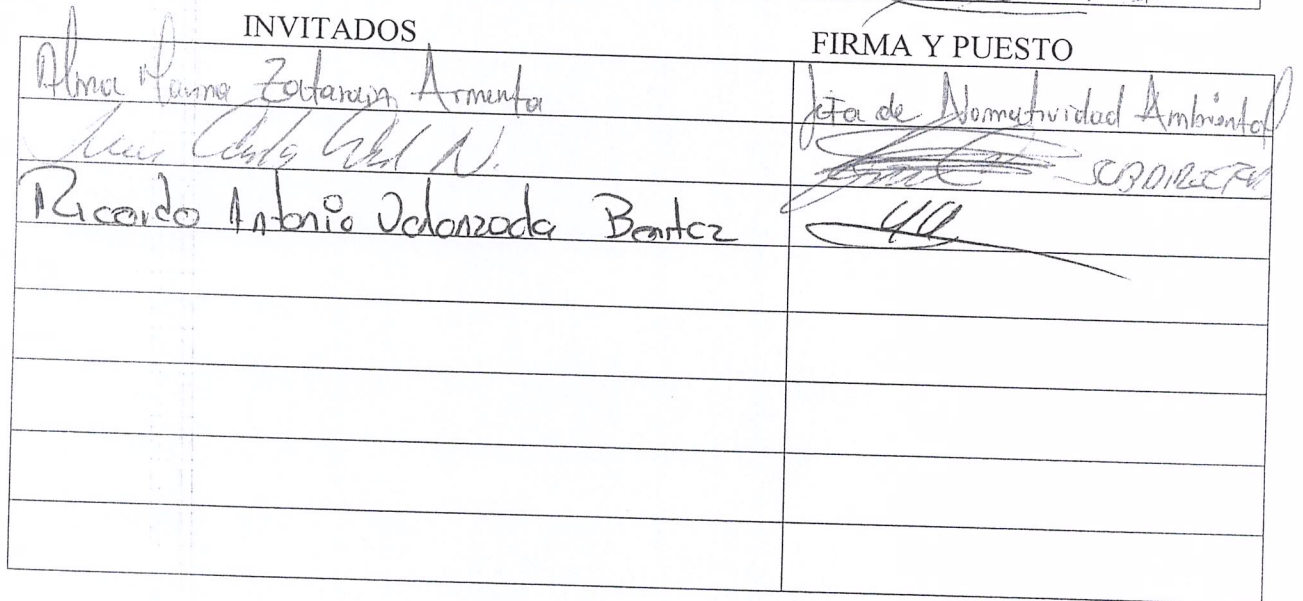 INVITADOS FIRMA Y PUESTO
Alma Marina Zatarain Armenta Jefa de Normatividad Ambiental
Luis Carlos N. SUBDIRECTOR
Ricardo Antonio Valenzuela Benitez